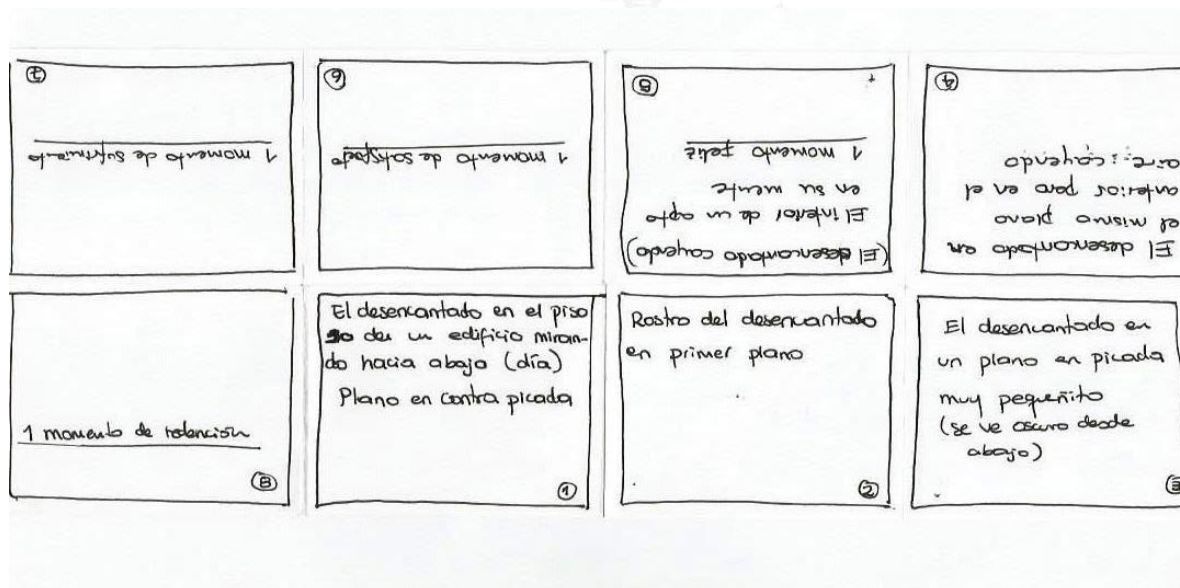 1 momento de sufrimiento
7
1 momento de satisfado
6
(El desencantado cayendo)
El interior de un apto
en su mente
1 momento feliz
5
El desencantado en
el mismo plano
anterior pero en el
aire: cayendo
4
1 momento de retención
8
El desencantado en el piso
de un edificio miran-
do hacia abajo (día)
Plano en contra picada
1
Rostro del desencantado
en primer plano
2
El desencantado en
un plano en picada
muy pequeñito
(se ve oscuro desde
abajo)
3